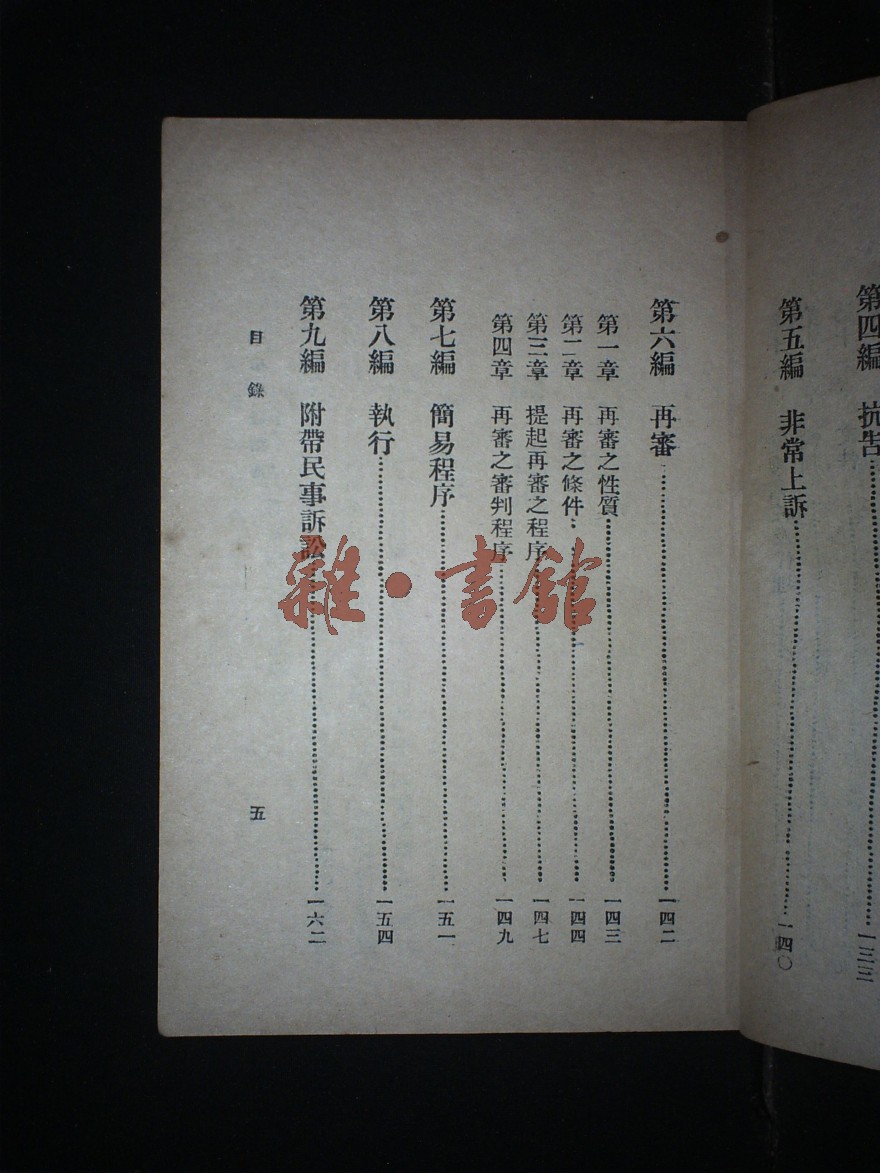 第四編　抗告……一三三
第五編　非常上訴……一四〇
第六編　再審……一四二
第一章　再審之性質……一四三
第二章　再審之條件……一四四
第三章　提起再審之程序……一四七
第四章　再審之審判程序……一四九
第七編　簡易程序……一五一
第八編　執行……一五四
第九編　附帶民事訴訟……一六二
目錄　五
雜·書館